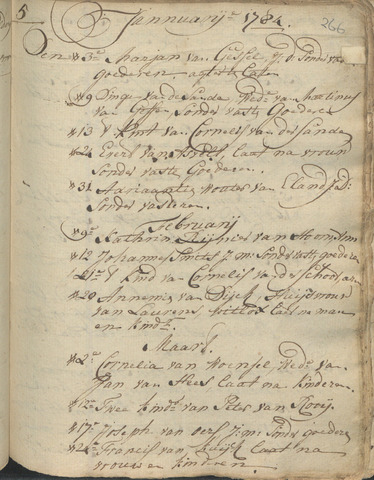 5 Jannuarij 1784. 266
den 3e Marjan van Gessel, J: d. Sonder
goederen
9 Dinge van de Sande Wede van Martinus
van Sonder vaste Goederen
13 't Kint van Cornelis van der Sande
24 Evert van laat na vrouw
Sonder vaste Goederen
31 Adriaantie Wouter van Eland J:d:
Sonder
Februarij
9e Kathrin Reijnier van
12 Johannes Smits J: m: Sonder vaste goederen
't kind van Cornelis van der Schoot
20 Annemie van Dijck, Huijsvrouw
van Laurens laat na man
en kind
Maart
2e Cornelia van Woensel Wede van
Jan van Hees laat na kinderen.
12e Twee kindt van Peter van Rooij.
17e Joseph van Oers J: m: Sonder goederen
24e Francis van laat na
vrouw en kinderen.